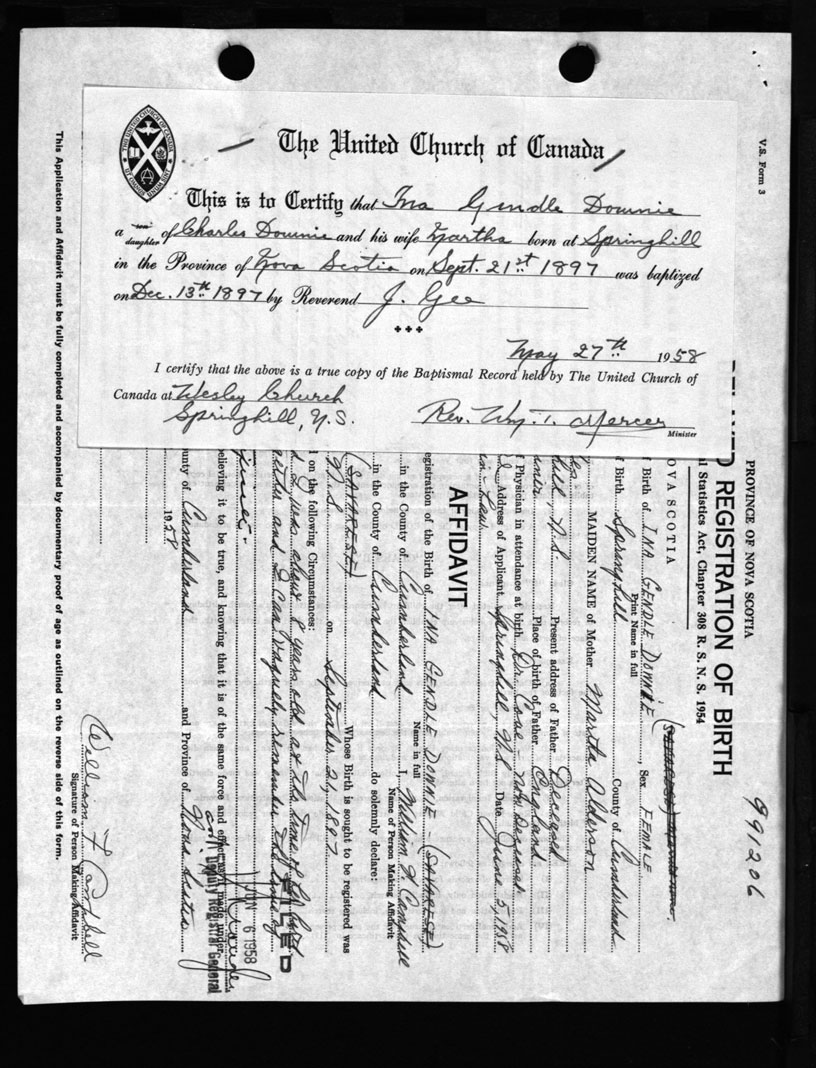 The United Church of Canada
This is to Certify that Ina Gendle Downie
a son daughter of Charles Downie and his wife Martha born at Springhill
in the Province of Nova Scotia on Sept. 21st 1897 was baptized
on Dec. 13th 1897 by Reverend J. Gee
May 27th 1958
I certify that the above is a true copy of the Baptismal Record held by The United Church of
Canada at Wesley Church
Springhill, N.S.
Rev. Wm. T. Mercer
Minister
V.S. Form 3
991206
PROVINCE OF NOVA SCOTIA
REGISTRATION OF BIRTH
al Statistics Act, Chapter 308 R. S. N. S. 1954
OVA SCOTIA
f Birth of INA GENDLE DOWNIE (SAVARESE), Sex FEMALE
Print Name in full
f Birth Springhill County of Cumberland
MAIDEN NAME of Mother Martha Alderson
hill, N.S. Present address of Father Deceased
Place of birth of Father England
f Physician in attendance at birth Dr. Cove - now Deceased
Address of Applicant Springhill, N.S. Date June 5, 1958
in-Law
AFFIDAVIT
egistration of the Birth of INA GENDLE DOWNIE - (SAVARESE)
Name in full
in the County of Cumberland I, William F. Campbell
Name of Person Making Affidavit
in the County of Cumberland do solemnly declare:
(SAVARESE) Whose Birth is sought to be registered was
N.S. on September 21, 1897
on the following Circumstances:
I was about 8 years old at the time of
and I can vaguely remember the time of
FILED
JUN 6 1958
Deputy Registrar General
elieving it to be true, and knowing that it is of the same force and effect as if made under
unty of Cumberland and Province of Nova Scotia
1958
William F Campbell
Signature of Person Making Affidavit
This Application and Affidavit must be fully completed and accompanied by documentary proof of age as outlined on the reverse side of this form.